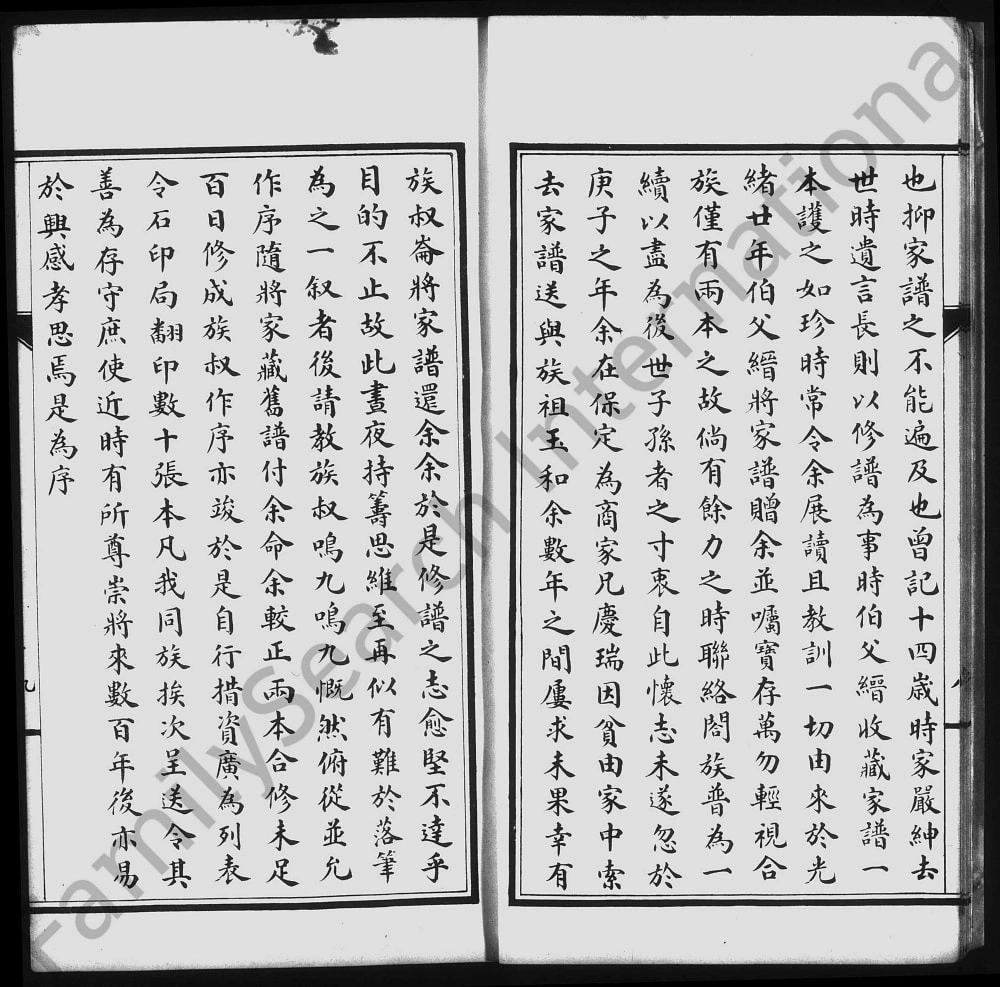 也抑家譜之不能遍及也曾記十四歲時家嚴紳去
世時遺言長則以修譜為事時伯父縉收藏家譜一
本護之如珍時常令余展讀且教訓一切由來於光
緒廿年伯父縉將家譜贈余並囑寶存萬勿輕視合
族僅有兩本之故倘有餘力之時聯絡閤族普為一
續以盡為後世子孫者之寸衷自此懷志未遂忽於
庚子之年余在保定為商家兄慶瑞因貧由家中索
去家譜送與族祖玉和余數年之間屢求未果幸有
族叔崙將家譜還余余於是修譜之志愈堅不達乎
目的不止故此晝夜持籌思維至再似有難於落筆
為之一叙者後請教族叔鳴九鳴九慨然俯從並允
作序隨將家藏舊譜付余命余較正兩本合修未足
百日修成族叔作序亦竣於是自行措資廣為列表
令石印局翻印數十張本凡我同族挨次呈送令其
善為存守庶使近時有所尊崇將來數百年後亦易
於興感孝思焉是為序
九
FamilySearch International